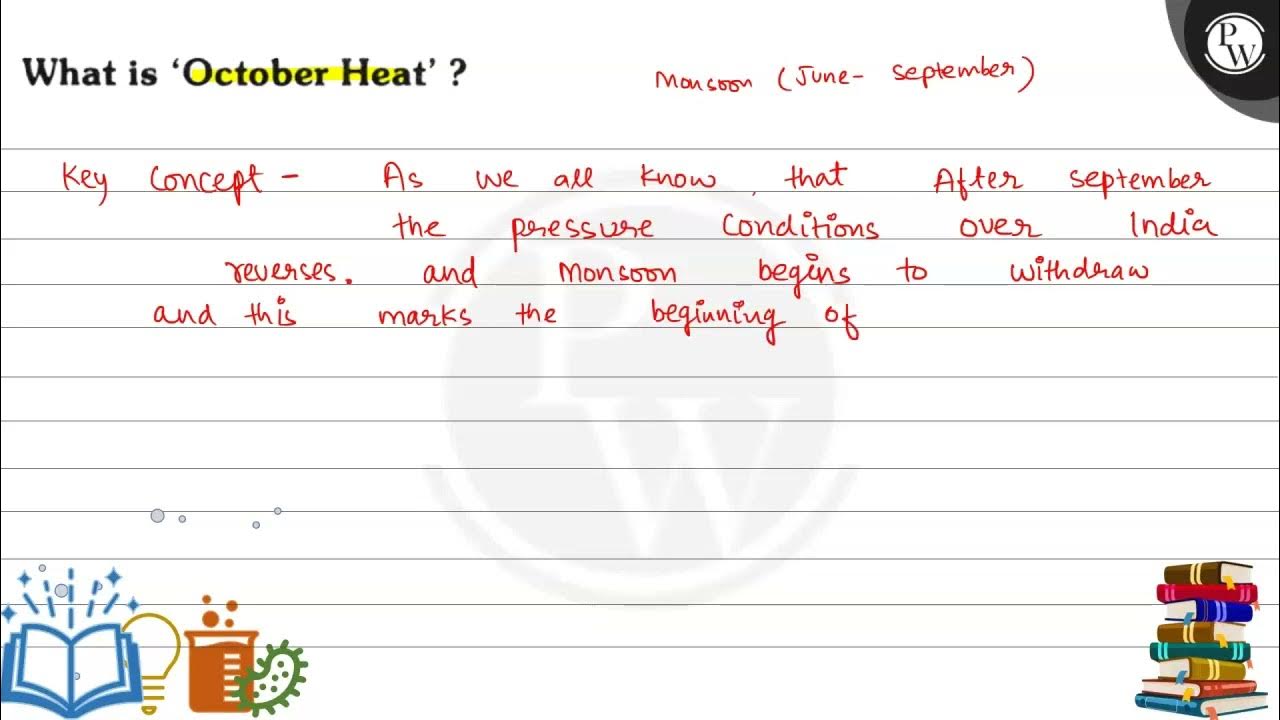 What is ‘October Heat’ ?
Monsoon (June - September)
PW
Key Concept - As we all know, that After September
the pressure Conditions over India
reverses. and Monsoon begins to withdraw
and this marks the beginning of
PW